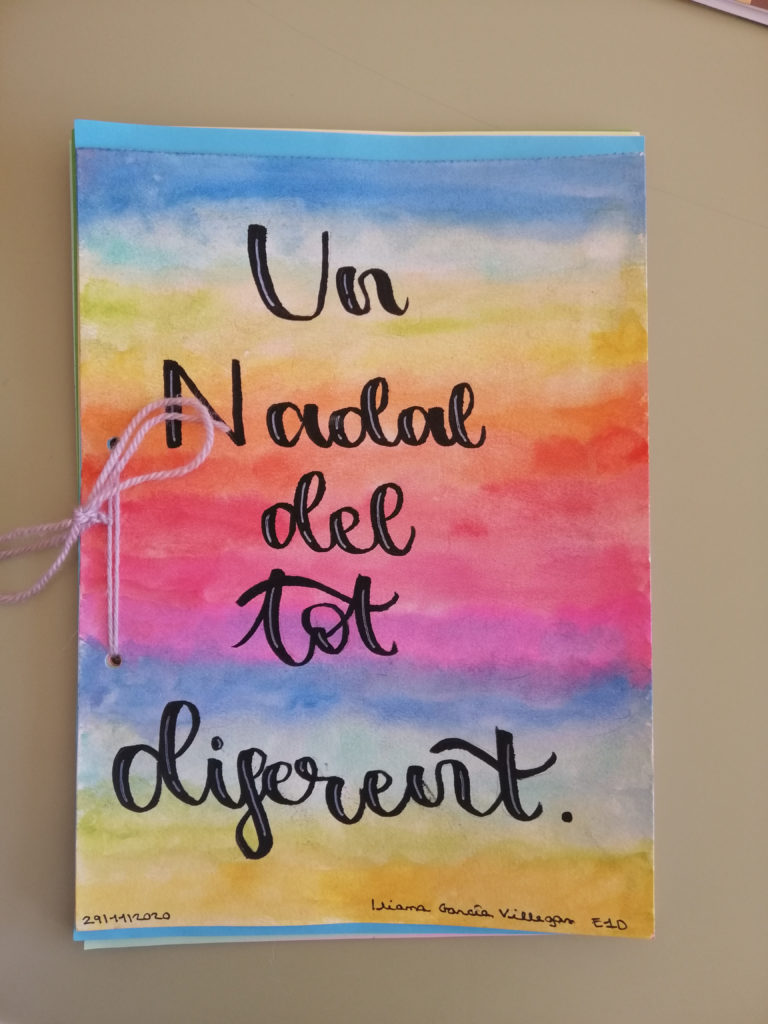 Un
Nadal
del
tot
diferent.
29/11/2020
Iliana García Villegas E1D